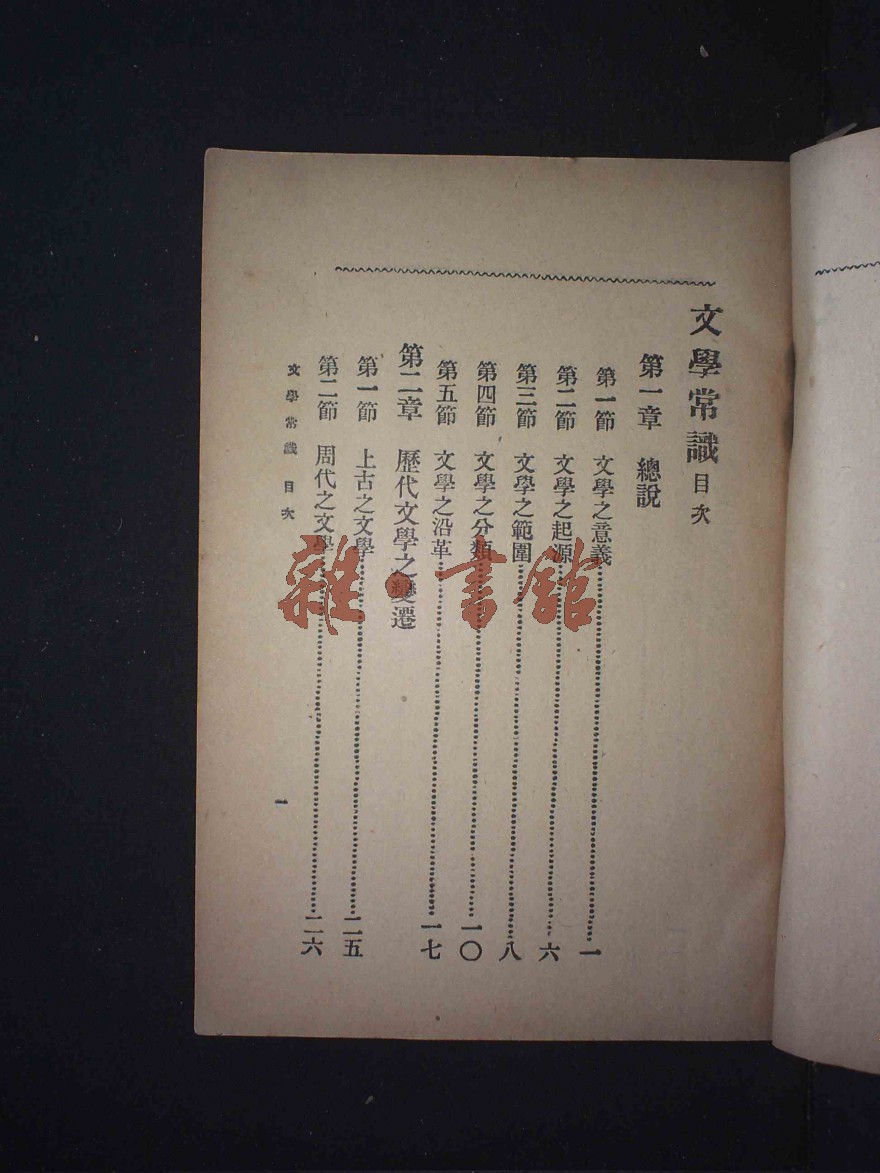 文學常識目次
第一章 總說
第一節 文學之意義……一
第二節 文學之起源……六
第三節 文學之範圍……八
第四節 文學之分類……一〇
第五節 文學之沿革……一七
第二章 歷代文學之變遷
第一節 上古之文學……二五
第二節 周代之文學……二六
文學常識 目次
一
雜·書館